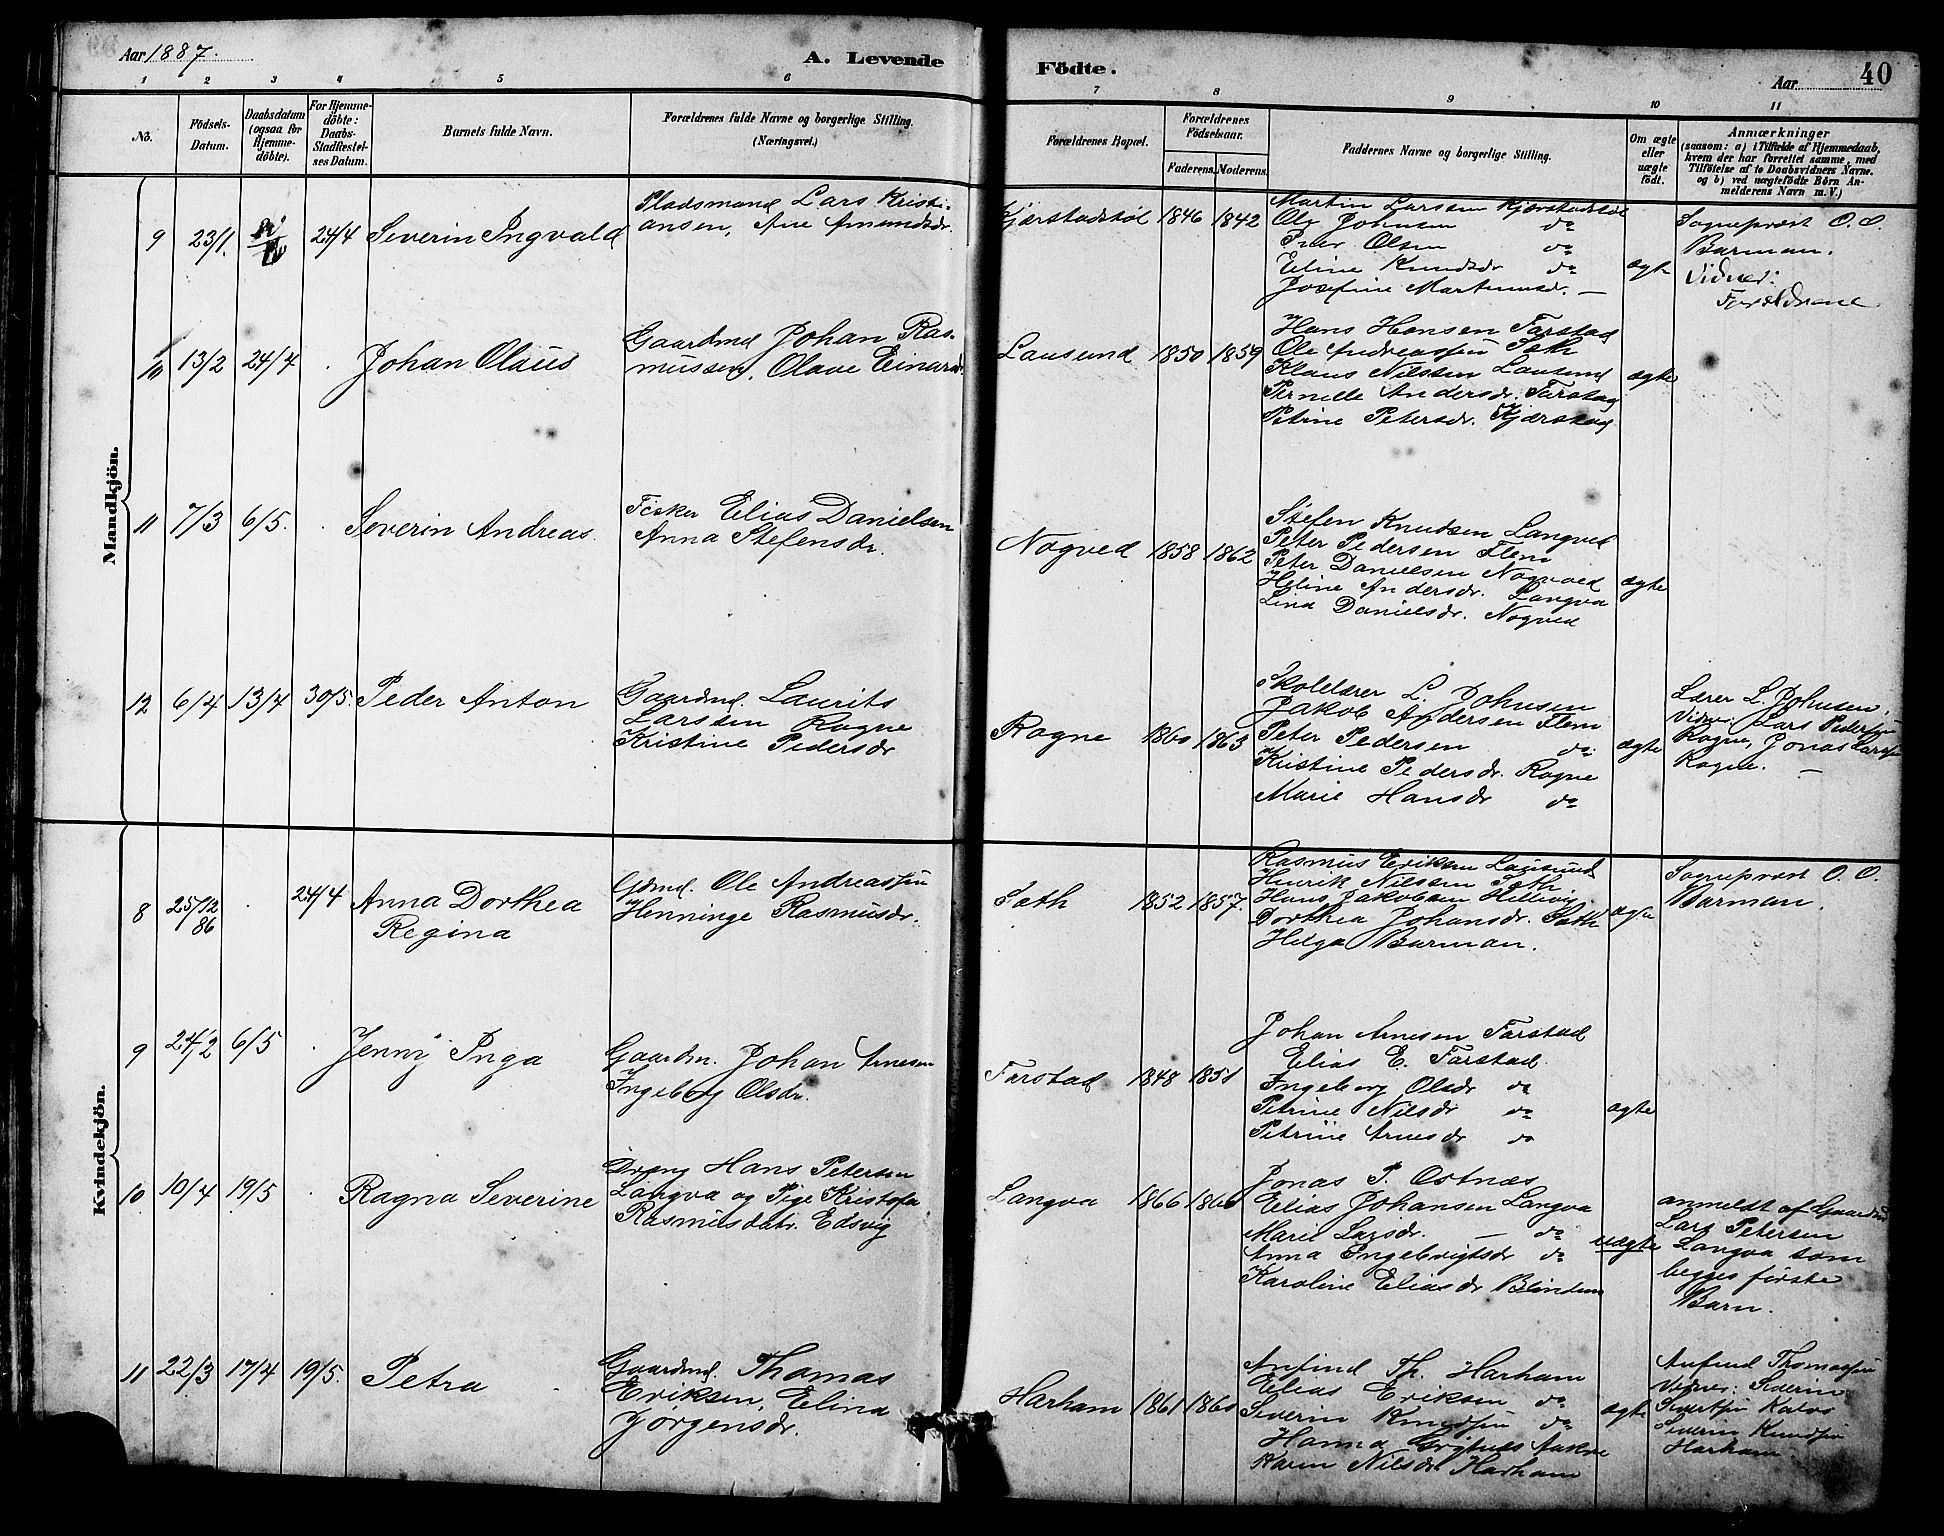 Aar 1887.
A. Levende
Födte.
Aar
40
1 2 3 4 5 6 7 8 9 10 11
No.
Födsels-
Datum.
Daabsdatum
(ogsaa for
Hjemme-
döbte).
For Hjemme-
döbte:
Daabs-
Stadfæstel-
ses Datum.
Barnets fulde Navn.
Forældrenes fulde Navne og borgerlige Stilling.
(Næringsvei.)
Forældrenes Bopæl.
Forældrenes
Födselsaar.
Faderens. Moderens.
Faddernes Navne og borgerlige Stilling.
Om ægte
eller
uægte
födt.
Anmærkninger
(saasom: a) i Tilfælde af Hjemmedaab,
hvem der har forrettet samme, med
Tilföielse af to Daabsvidners Navne.
og b) ved uægtefödte Börn An-
melderens Navn m. V.)
Mandkjön.
9 23/1. 24/4 Severin Ingvald
Pladsmand Lars Kristi-
ansen, Ane Amundsdr.
Kjærstadstøl 1846 1842
Martin Larsen Kjærstadstøl
Ole Johnsen do
Iver Olsen do
Eline Knudsdr do
Josefine Martinusdr. —
ægte
Sognepræst O. O.
Barman.
Vidner:
Forældrene
10 13/2 24/4 . Johan Olaus
Gaardmd Johan Ras-
mussen, Olave Einarsd.
Lausund 1850 1859
Hans Hansen Farstad
Ole Andreassen Sæth
Klaus Nilssen Lausund
Pernelle Andersdr. Farstad
Petrine Petersdr. Kjærstad
ægte
11 7/3 6/5. . Severin Andreas.
Fisker Elias Danielsen
Anna Stefensdr.
Nogved 1858 1862
Stefen Knudsen Langved
Peter Pedersen Flem
Peter Danielsen Nogved
Heline Andersdr. Langva
Lina Danielsdr. Nogved
ægte
12 6/4 13/4 30/5. Peder Anton
Gaardmd. Laurits
Larssen Rogne
Kristine Pedersdr
Rogne 1860 1863
Skolelærer L. Johnsen
Jakob Andersen Flem
Peter Pedersen do
Kristine Pedersdr. Rogne
Marie Hansdr do
ægte
Lærer L. Johnsen,
Vidner: Lars Pedersen
Rogne, Jonas Larsen
Rogne. —
Kvindekjön.
8 25/12 86 . 24/4 Anna Dorthea
Regina
Gdmd. Ole Andreassen
Henninge Rasmusdr.
Sæth 1852 1857.
Rasmus Eriksen Lausund
Henrik Nilssen Sæth
Hans Jakobsen Hellevig
Dorthea Johansdr. Sæth
Helga Barman.
ægte
Sognepræst O. O.
Barman.
9 24/2 6/5 . Jenny Inga
Gaardm. Johan Arnesen
Ingeborg Olsdr.
Farstad 1848 1851
Johan Arnesen Farstad
Elias E. Farstad.
Ingeborg Olsdr do
Petrine Nilsdr do
Petrine Arnesdr do
ægte
10 10/4 19/5 . Ragna Severine
Dreng Hans Petersen
Langva og Pige Kristofa
Rasmusdatr. Edsvig
Langva 1866 1866
Jonas P. Ostnæs
Elias Johansen Langva
Marie Larsdr. — do
Anna Engebrigtsdr do
Karoline Eliasdr Blindem
uægte
anmeldt af Gaardmd
Lars Petersen
Langva som
begges første
Barn.
11 22/3 17/4 19/5. Petra
Gaardmd. Thomas
Eriksen, Elina
Jørgensdr.
Harham 1861 1860
Anfind Th. Harham
Elias Eriksen do
Severin Knudsen do
Hanna
Karen Nilsdr Harham
ægte
Anfind Thomassen
Vidner: Severin
Sivertsen Kalvø
Severin Knudsen
Harham.